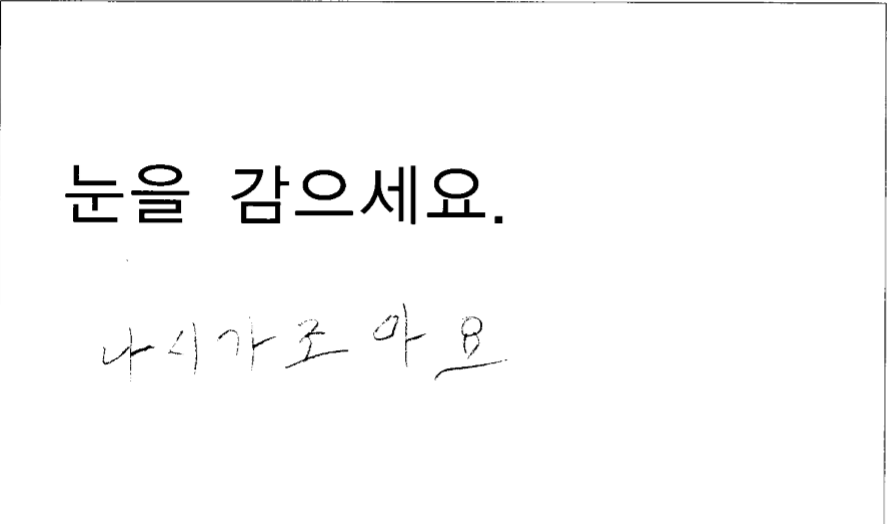 눈을 감으세요.
나시가조아요